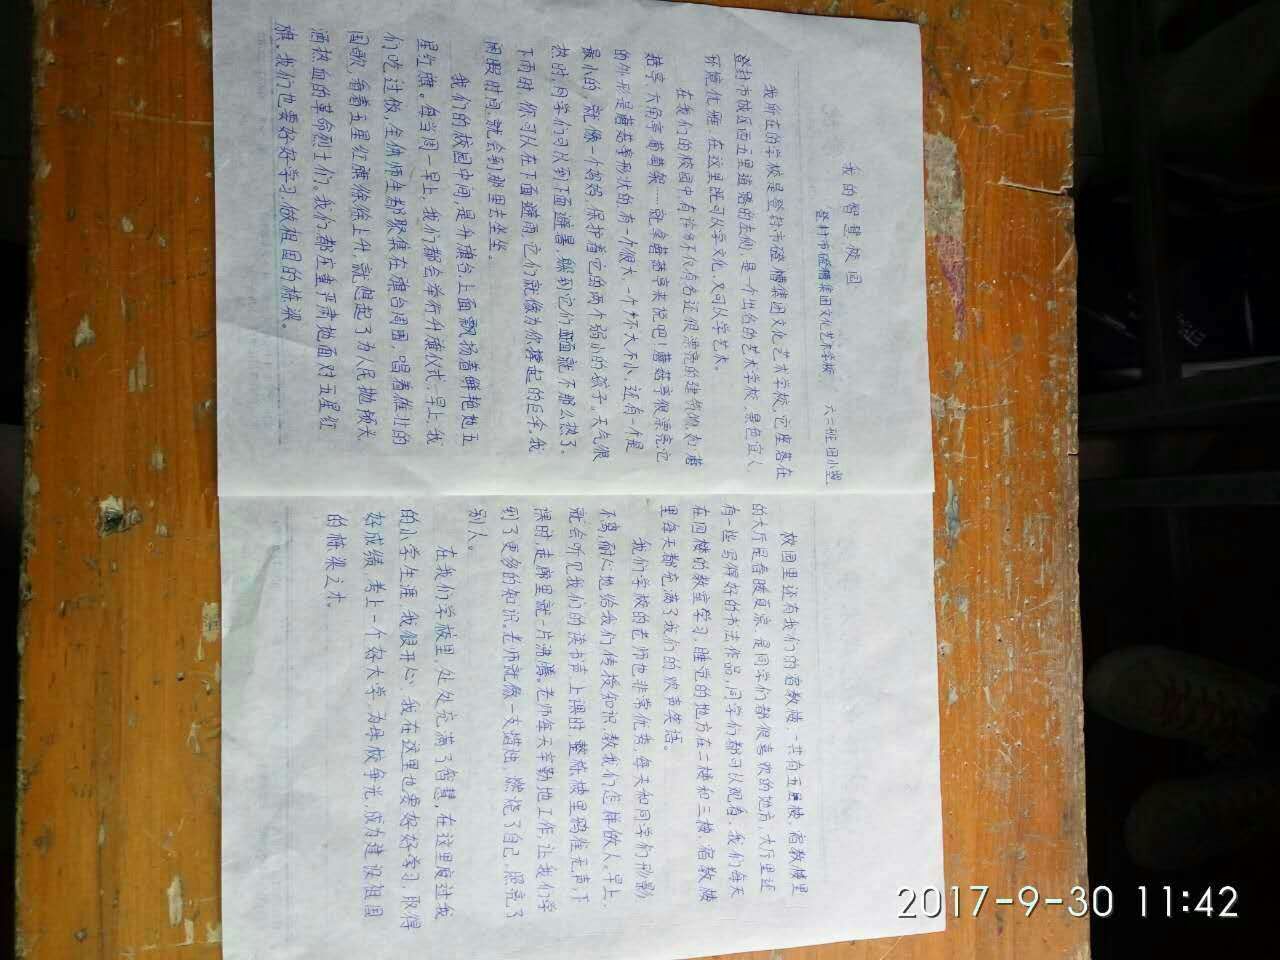 我的智慧校园
登封市磴槽集团文化艺术学校 六二班田小翠
我所在的学校是登封市磴槽集团文化艺术学校,它座落在
登封市城区西五里道路的左侧,是一个出名的艺术学校,景色宜人,
环境优雅,在这里既可以学文化,又可以学艺术。
在我们的校园中有许多不仅有名还很漂亮的建筑物,如蘑
菇亭、六角亭、葡萄架……就拿蘑菇亭来说吧!蘑菇亭很漂亮,它
的外形是蘑菇等形状的,有一个很大,一个怀大不小,还有一个是
最小的,就像一个妈妈,保护着它的两个弱小的孩子。天气很
热时,同学们可以到下面避暑,躲到它们下面就不那么热了。
下雨时,你可以在下面避雨,它们就像为你撑起的巨伞,我
闲暇时间,就会到那里去坐坐。
我们的校园中间,是升旗台上面飘扬着鲜艳地五
星红旗。每当周一早上,我们都会举行升旗仪式,早上,我
们吃过饭,全体师生都聚集在旗台周围,唱着雄壮的
国歌,看着五星红旗徐徐上升,就想起了为人民抛头颅
洒热血的革命烈士们。我们都庄重严肃地面对五星红
旗。我们也要好好学习,做祖国的栋梁。
校园里还有我们的宿教楼,一共有五层楼,宿教楼里
的大厅是春暖夏凉,是同学们都很喜欢的地方,大厅里还
有一些写得好的书法作品,同学们都可以观看,我们每天
在四楼的教室学习,睡觉的地方在二楼和三楼,宿教楼
里每天都充满了我们的欢声笑语。
我们学校的老师也非常优秀,每天和同学们形影
不离,耐心地给我们传授知识,教我们怎样做人。早上,
就会听见我们的读书声,上课时,整栋楼里鸦雀无声,下
课时,走廊里就一片沸腾。老师每天辛勤地工作,让我们学
到了更多的知识。老师就像一支蜡烛,燃烧了自己,照亮了
别人。
在我们学校里,处处充满了智慧,在这里度过我
的小学生涯,我很开心,我在这里也要好好学习,取得
好成绩,考上一个好大学,为母校争光,成为建设祖国
的栋梁之才。
2017-9-30 11:42